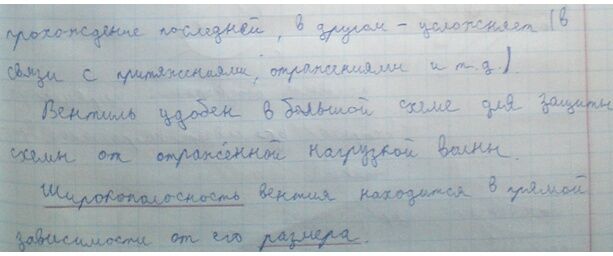 прохождение последней, в другом – усложняет (в
связи с притяжениями, отражениями и т.д.).
Вентиль удобен в большой схеме для защиты
схемы от отражённой нагрузкой волны.
Широкополосность вентия находится в прямой
зависимости от его размера.